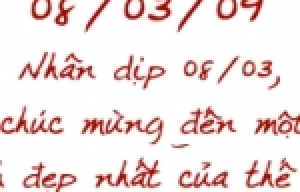 08/03/09
Nhân dịp 08/03,
chúc mừng đến một
đẹp nhất của thế